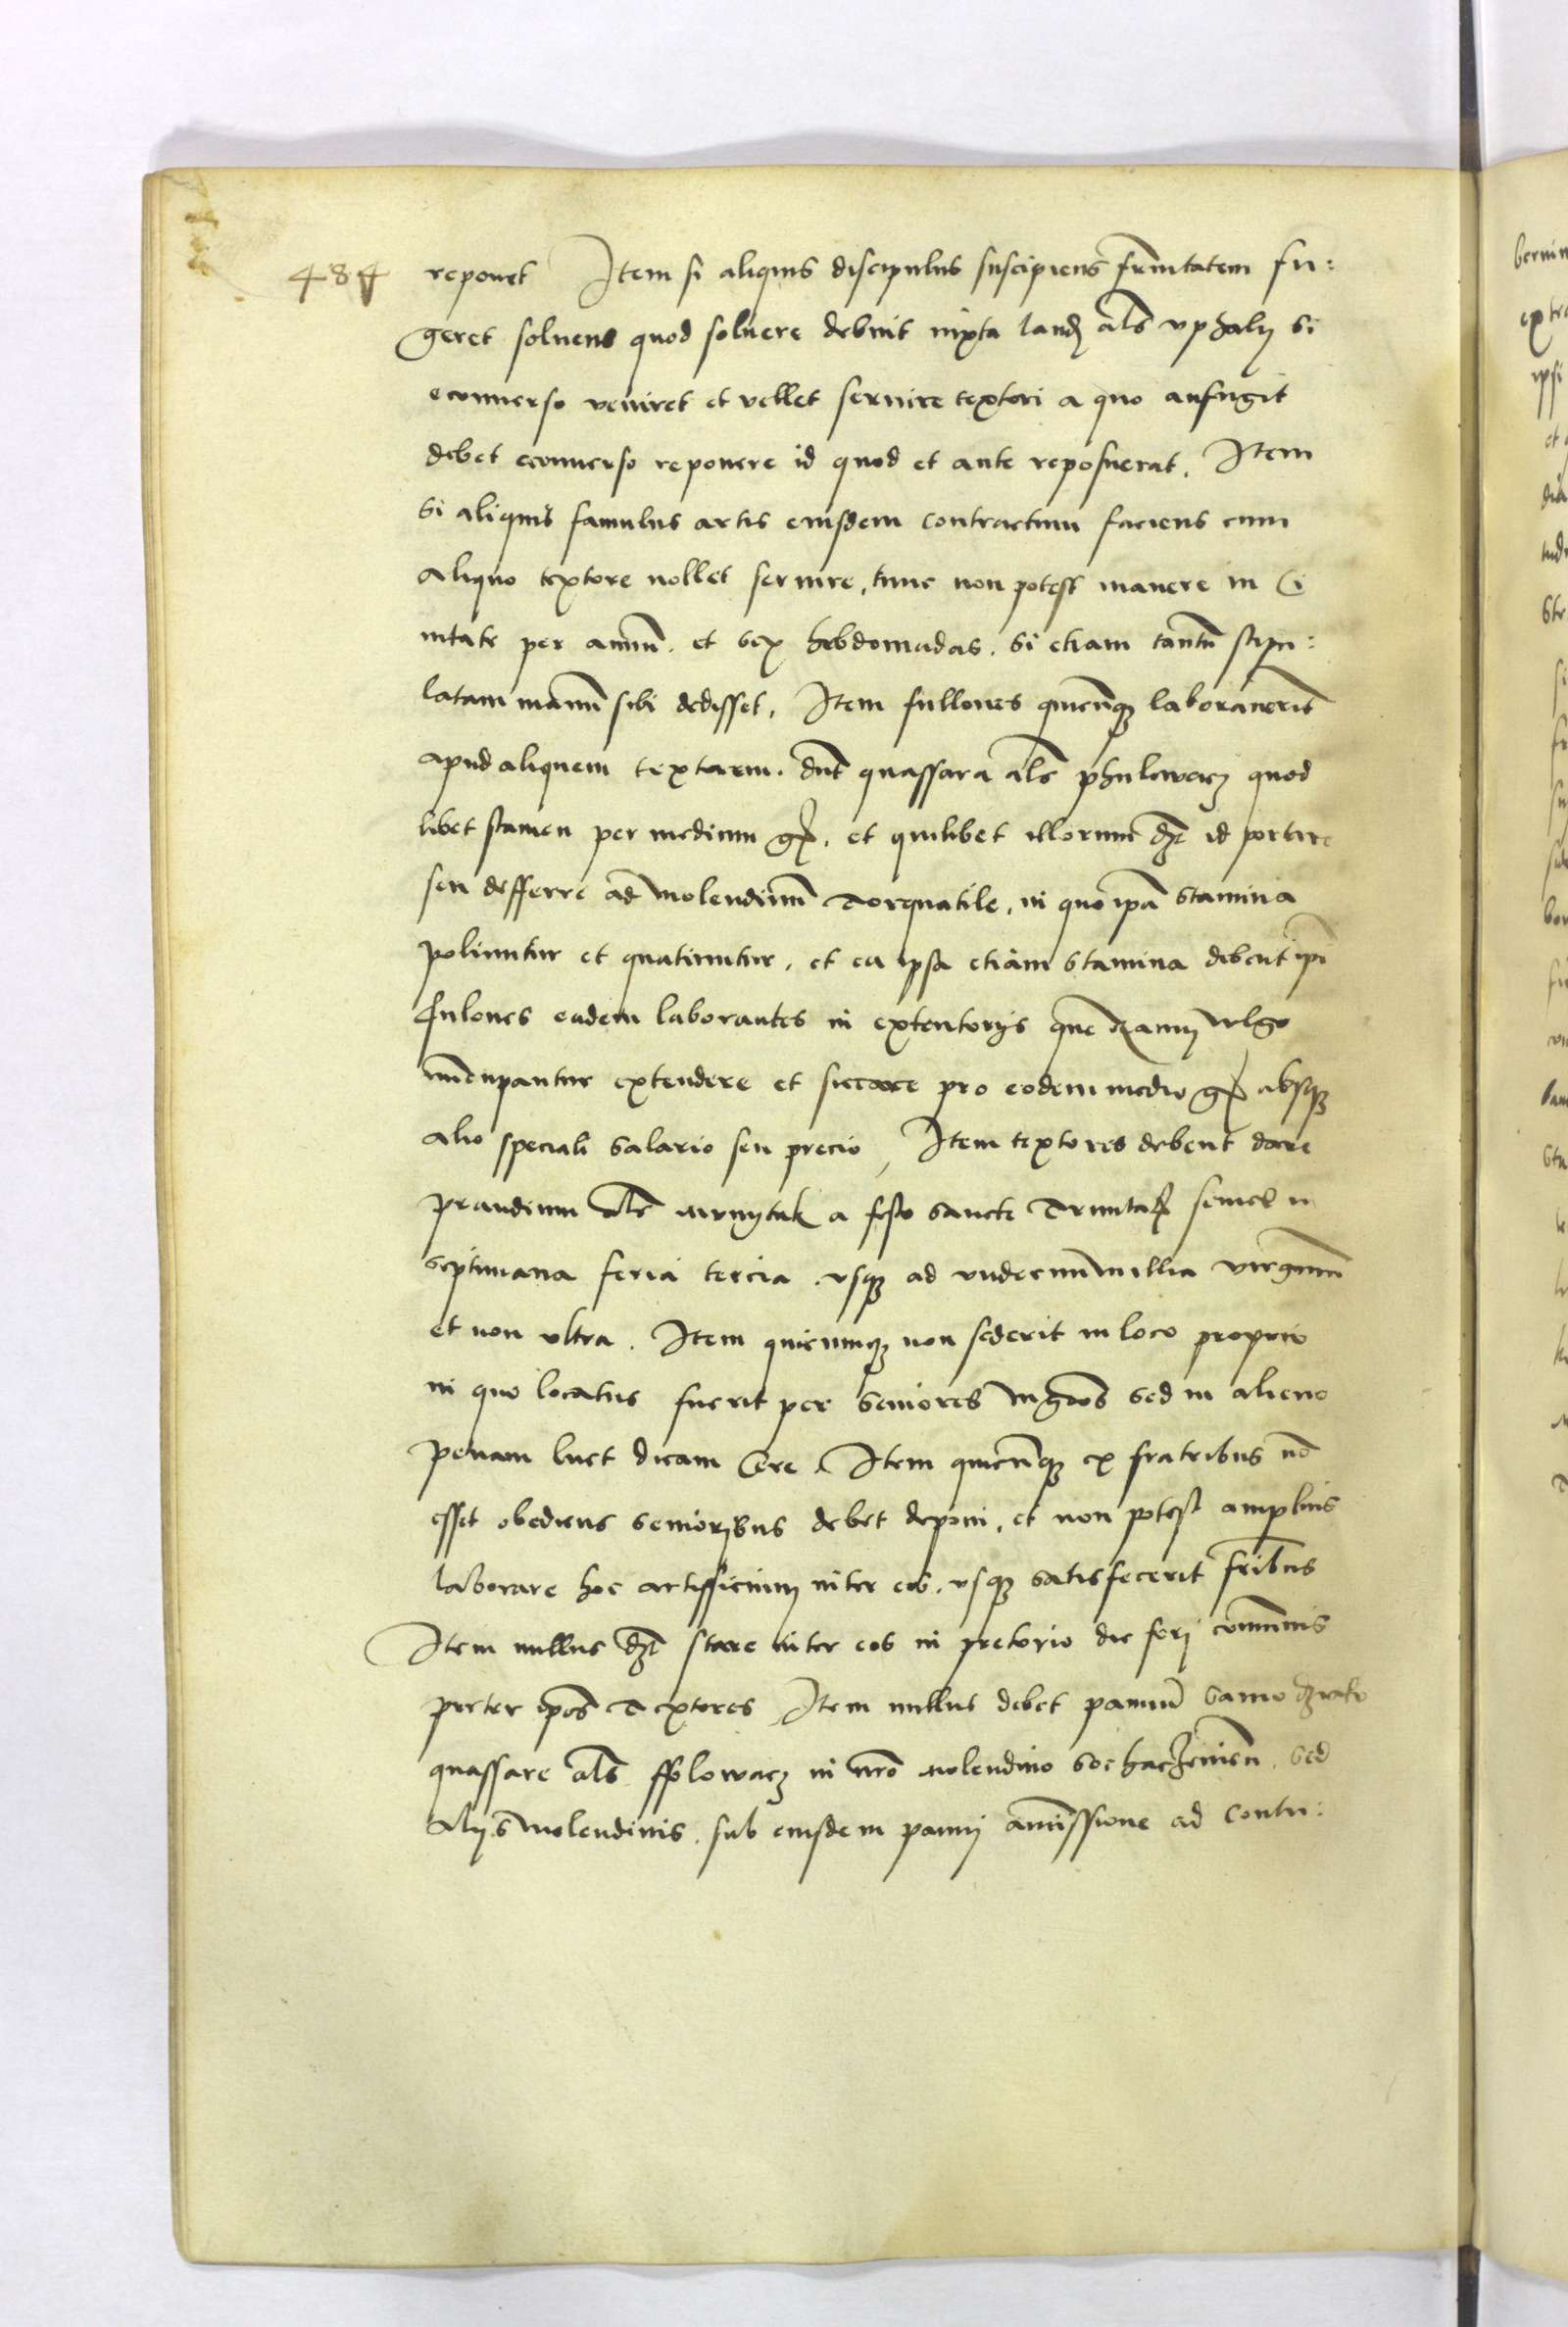 484
reponet Item si aliquis discipulus suscipiens frnitatem fu:
geret soluens quod soluere debuit iuxta laud als vphaly si
econuerso veniret et vellet seruire textori a quo aufugit
debet econuerso reponere id quod et ante reposuerat. Item
si aliquis famulus artis eiusdem contractum faciens cum
aliquo textore nollet seruire, tunc non potest manere in Ci
uitate per annu. et sex hebdomadas. si etiam tantu stipu:
latam manu sibi dedisset. Item fullones quicunq laborauerit
apud aliquem textorem. dnt quassara als phulowacz quod
libet stamen per medium gr. et quilibet illorum dz id portare
seu defferre ad molendinu Torquatile, in quo ipa stamina
poliuntur et quatiuntur, et ea ipsa etiam stamina debent ipi
fulones eadem laborantes in extentorijs que Ramy wlgo
nuncupantur extendere et siccare pro eodem medio gr absq
alio speciali salario seu precio, Item textores debent dare
prandium als a festo sancte Trinitat semel in
septimana feria tercia. vsq ad vndecim millia virginum
et non vltra. Item quicunq non sederit in loco proprio
in quo locatus fuerit per seniores sed in alieno
penam luet dicam Cere. Item quicunq ex fratribus no
esset obediens senioribus debet deponi, et non potest amplius
laborare hoc artifficium inter eos. vsq satisfecerit fribus
Item nullus dz stare inter eos in pretorio die fori communis
preter ipos Textores Item nullus debet pannu
quassare als ffolowacz in nro molendino sochaczeuien. sed
alijs molendinis. sub eiusdem panni amissione ad contu: